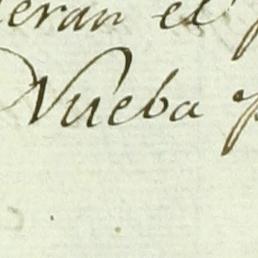 eran el
Nueba